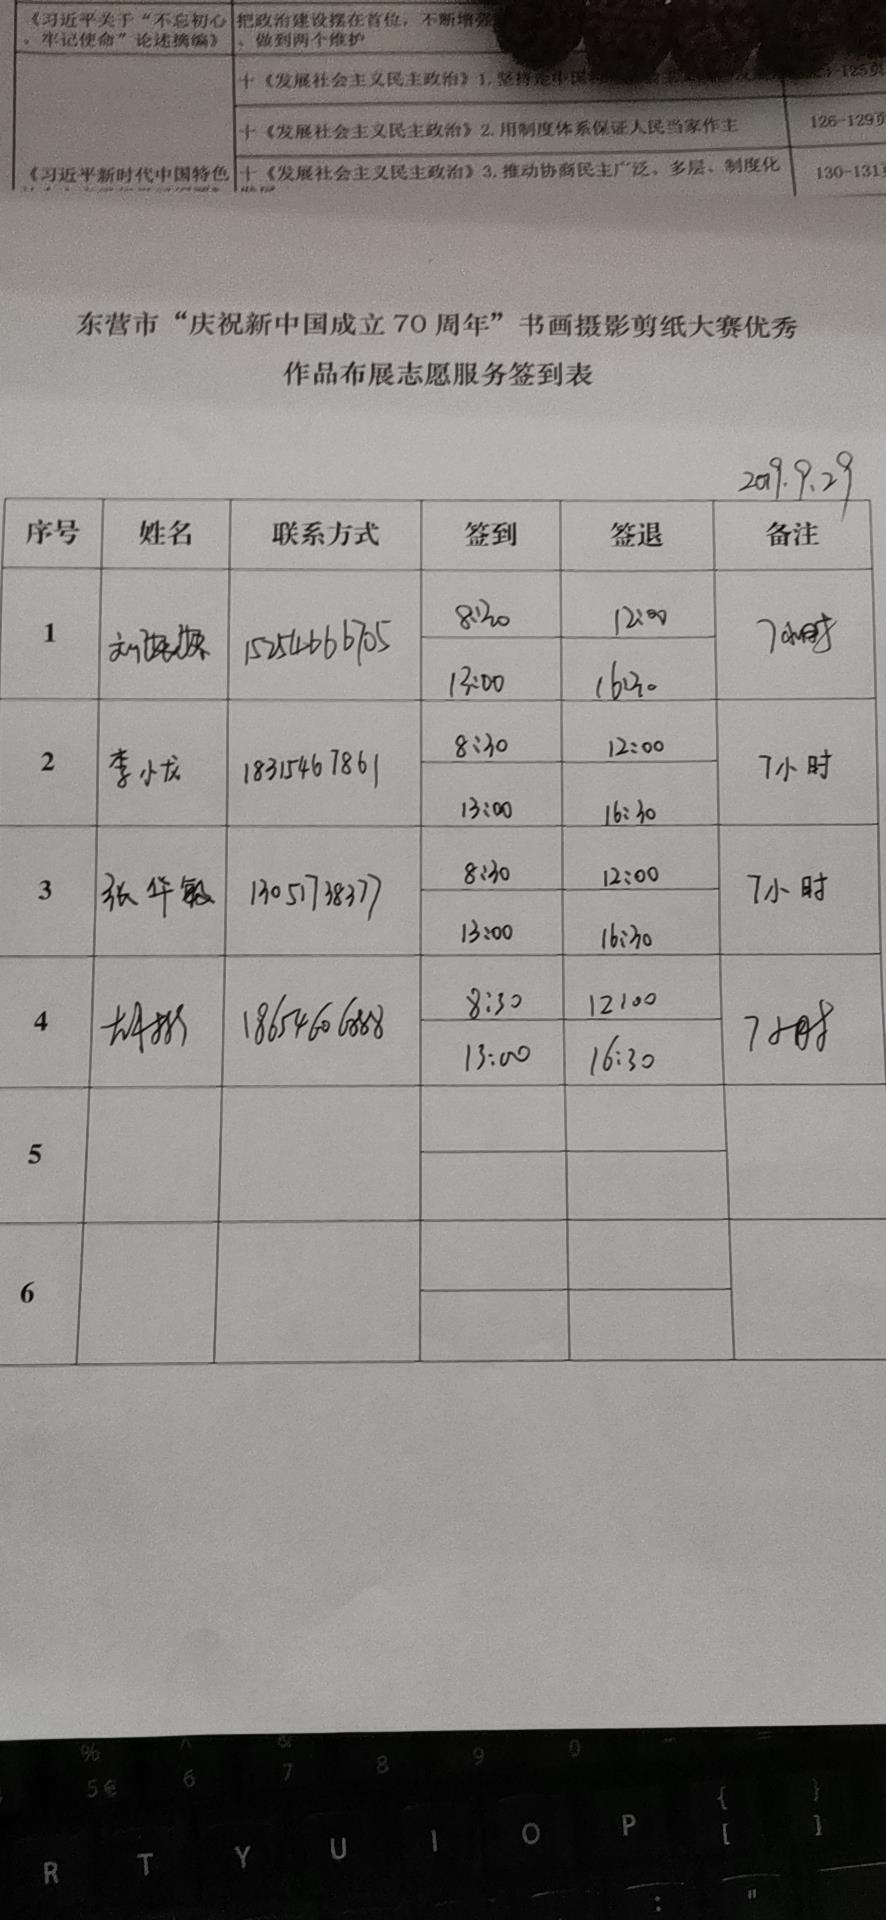 《习近平关于“不忘初心
、牢记使命”论述摘编》
把政治建设摆在首位，不断增强
、做到两个维护
十《发展社会主义民主政治》1.坚持走中国
125页
十《发展社会主义民主政治》2.用制度体系保证人民当家作主
126-129页
《习近平新时代中国特色
十《发展社会主义民主政治》3.推动协商民主广泛、多层、制度化
130-131页
东营市“庆祝新中国成立 70 周年”书画摄影剪纸大赛优秀
作品布展志愿服务签到表
2019.9.29
序号 姓名 联系方式 签到 签退 备注
1 15254666705 8:30 12:00 7小时
13:00 16:30
2 李小龙 18315467861 8:30 12:00 7小时
13:00 16:30
3 张华敏 13051738377 8:30 12:00 7小时
13:00 16:30
4 18654606888 8:30 12:00 7小时
13:00 16:30
5
6
% ^ & 
5 € 6 7 8 9 0 - =
R T Y U I O P { [ } ]
: "